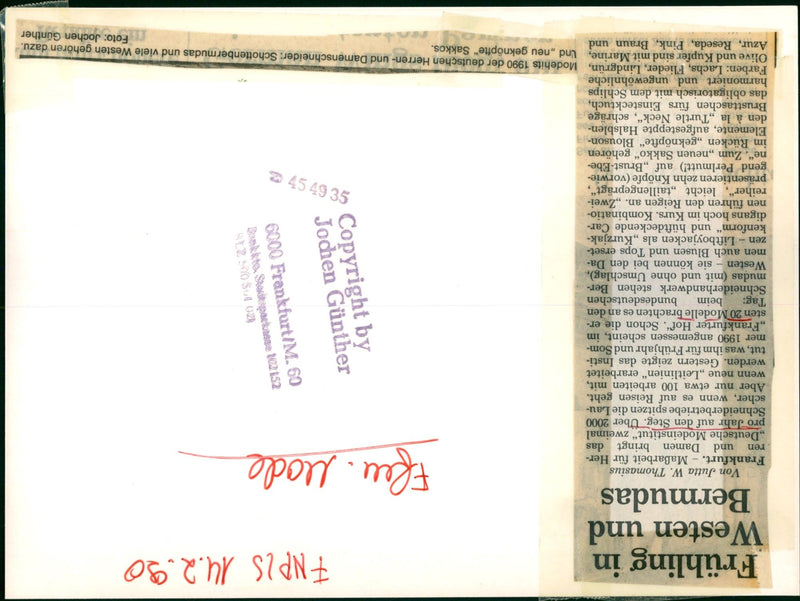 Frühling in
Westen und
Bermudas
Von Jutta W. Thomasius
Frankfurt. – Maßarbeit für Her-
ren und Damen bringt das
„Deutsche Modeinstitut“ zweimal
pro Jahr auf den Steg. Über 2000
Schneiderbetriebe spitzen die Lau-
scher, wenn es auf Reisen geht.
Aber nur etwa 100 arbeiten mit,
wenn neue „Leitlinien“ erarbeitet
werden. Gestern zeigte das Insti-
tut, was ihm für Frühjahr und Som-
mer 1990 angemessen scheint, im
„Frankfurter Hof“. Schon die er-
sten 20 Modelle brachten es an den
Tag: beim bundesdeutschen
Schneiderhandwerk stehen Ber-
mudas (mit und ohne Umschlag),
Westen – sie können bei den Da-
men auch Blusen und Tops erset-
zen – Liftboyjacken als „Kurzjak-
kenform“ und hüftdeckende Car-
digans hoch im Kurs. Kombinatio-
nen führen den Reigen an. „Zwei-
reiher“, leicht „tailliengeprägt“,
präsentieren zehn Knöpfe (vorwie-
gend Perlmutt) auf „Brust-Ebe-
ne“. Zum „neuen Sakko“ gehören
im Rücken „geknöpfte“ Blouson-
Elemente, aufgesteppte Halsblen-
den à la „Turtle Neck“, schräge
Brusttaschen fürs Einstecktuch,
das obligatorisch mit dem Schlips
harmoniert und ungewöhnliche
Farben: Lachs, Flieder, Lindgrün,
Olive und Kupfer sind mit Marine,
Azur, Reseda, Pink, Braun und
Modehits 1990 der deutschen Herren- und Damenschneider: Schottenbermudas und viele Westen gehören dazu.
Und „neu geknöpfte“ Sakkos.
Foto: Jochen Günther
454935
Copyright by
Jochen Günther
6000 Frankfurt/M. 60
Mode
FNPLS 14.2.90